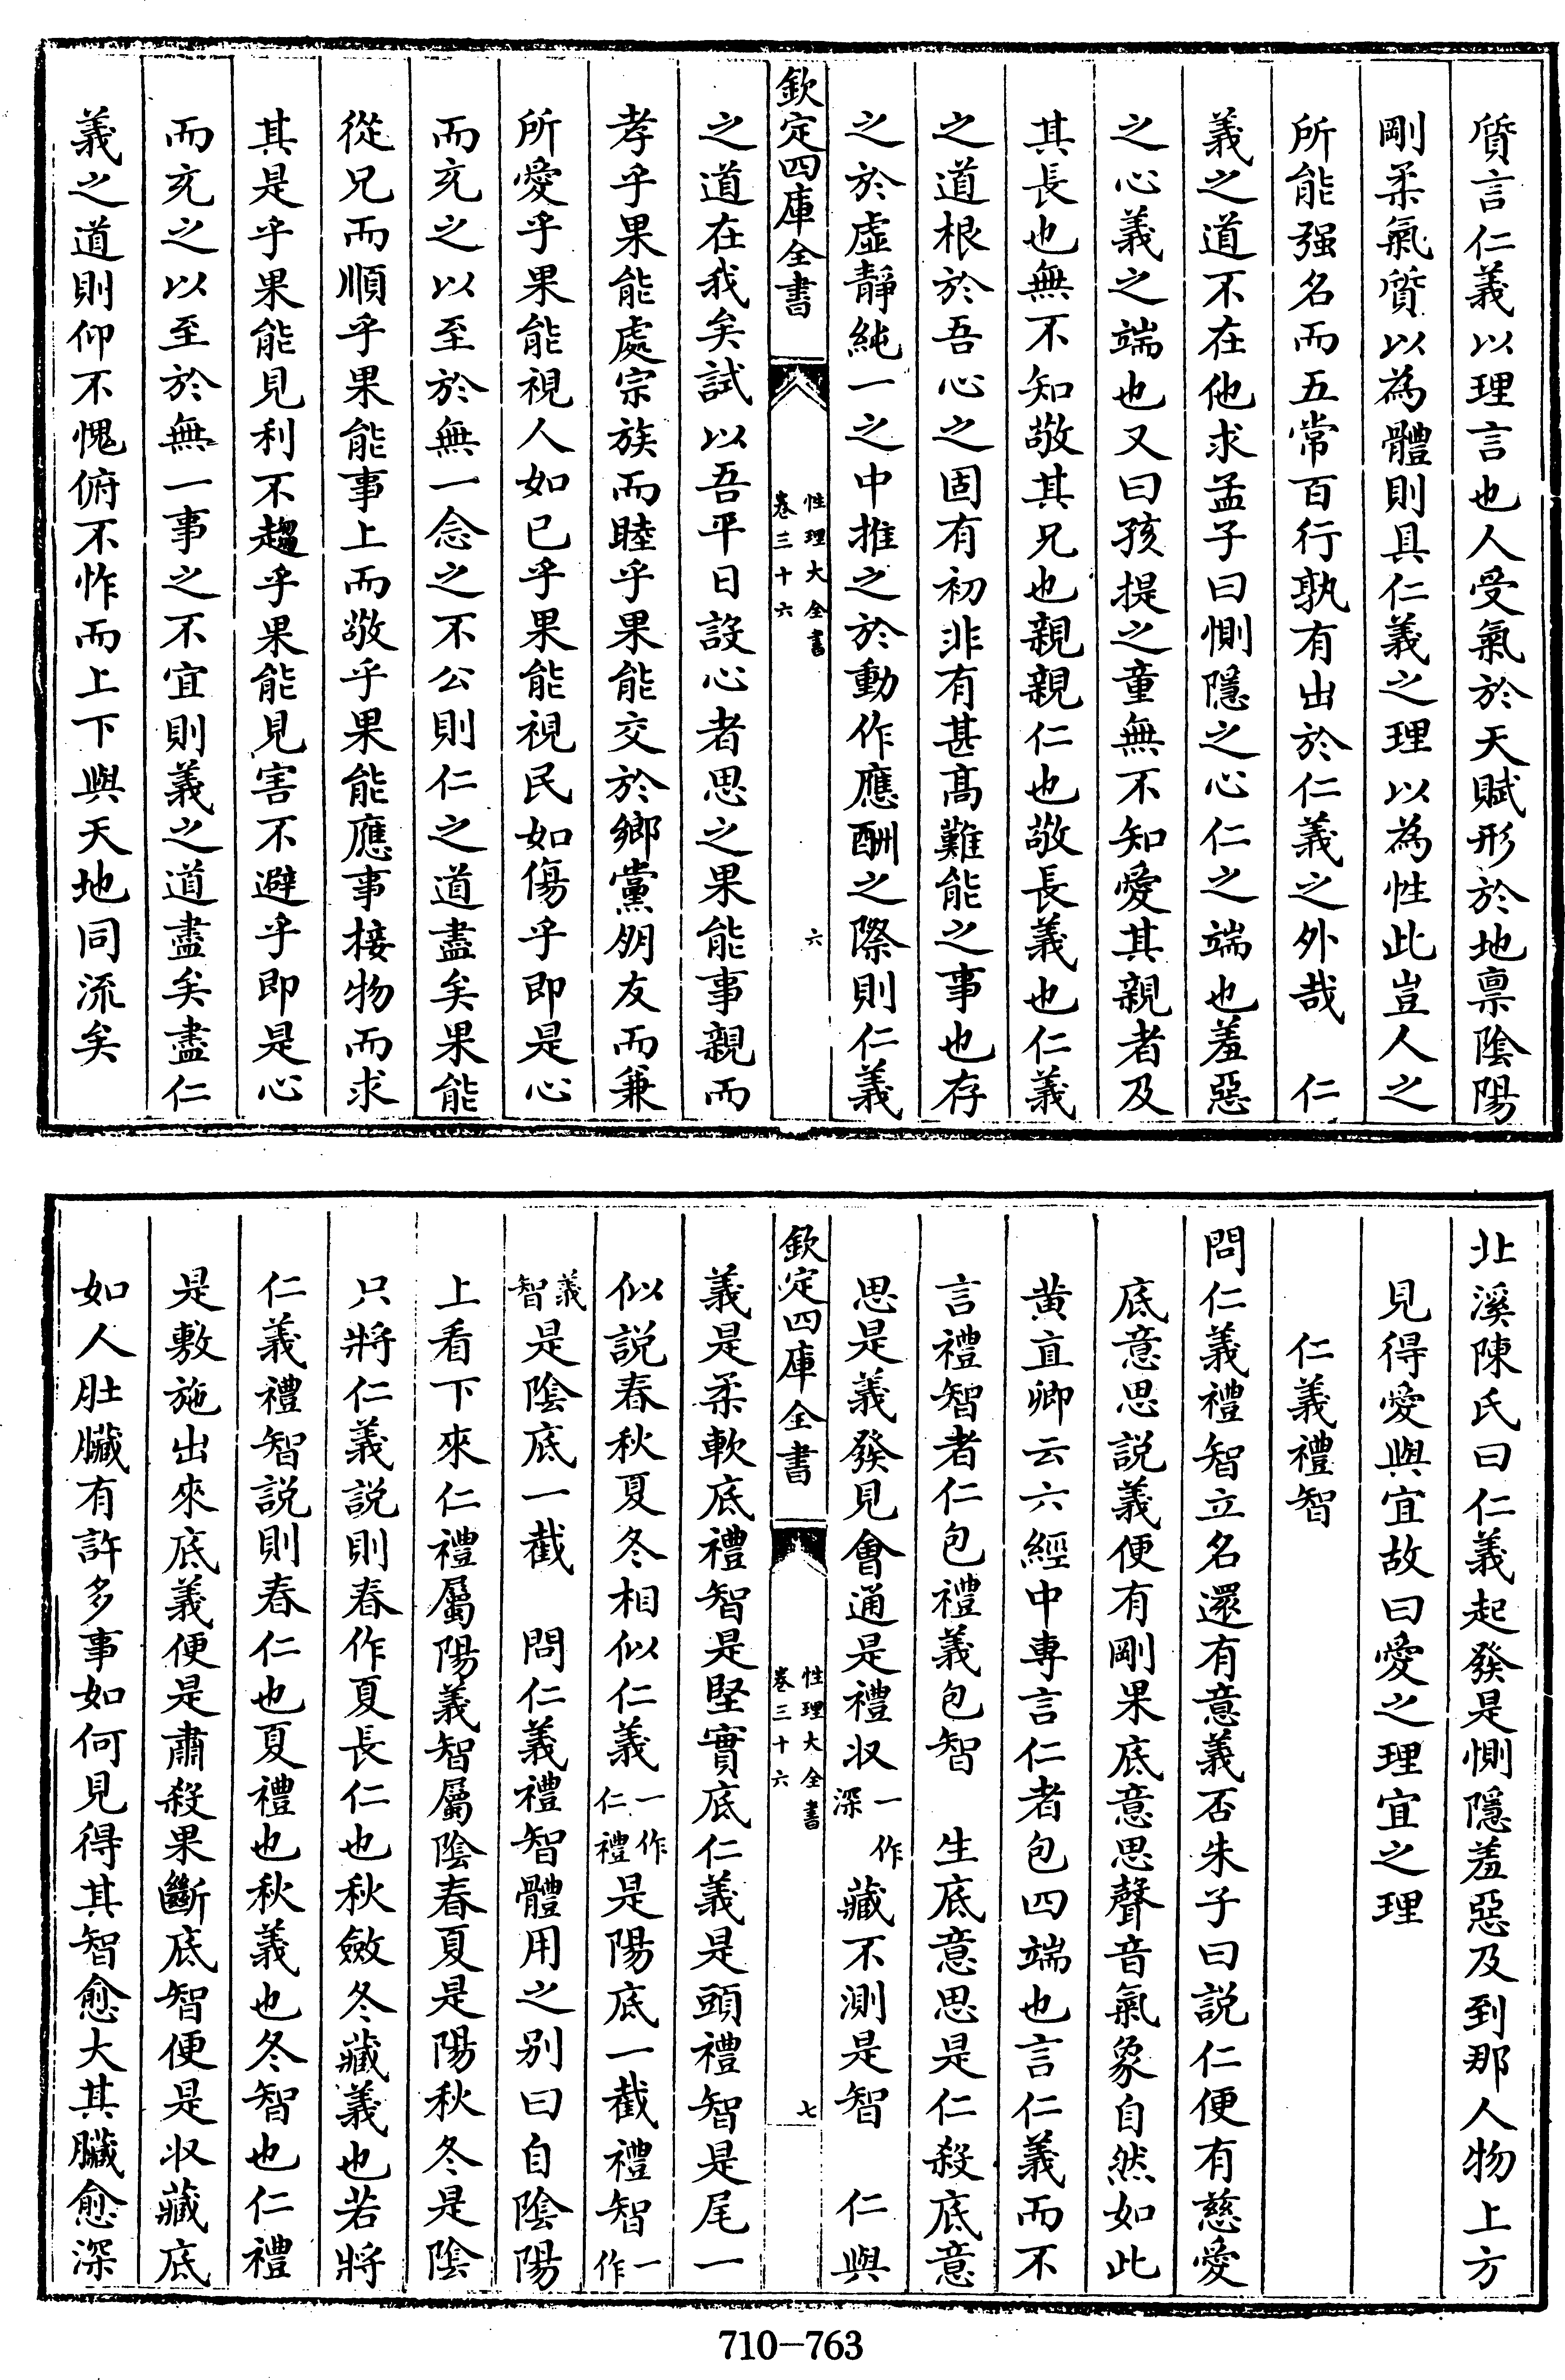 質言仁義以理言也人受氣於天賦形於地禀陰陽
剛柔氣質以為體則具仁義之理以為性此豈人之
所能强名而五常百行孰有出於仁義之外哉　仁
義之道不在他求孟子曰惻隱之心仁之端也羞惡
之心義之端也又曰孩提之童無不知愛其親者及
其長也無不知敬其兄也親親仁也敬長義也仁義
之道根於吾心之固有初非有甚髙難能之事也存
之於虚靜純一之中推之於動作應酬之際則仁義
欽定四庫全書
性理大全書
卷三十六
六
之道在我矣試以吾平日設心者思之果能事親而
孝乎果能處宗族而睦乎果能交於鄉黨朋友而兼
所愛乎果能視人如已乎果能視民如傷乎即是心
而充之以至於無一念之不公則仁之道盡矣果能
從兄而順乎果能事上而敬乎果能應事接物而求
其是乎果能見利不趨乎果能見害不避乎即是心
而充之以至於無一事之不宜則義之道盡矣盡仁
義之道則仰不愧俯不怍而上下與天地同流矣
北溪陳氏曰仁義起發是惻隱羞惡及到那人物上方
見得愛與宜故曰愛之理宜之理
仁義禮智
問仁義禮智立名還有意義否朱子曰説仁便有慈愛
底意思説義便有剛果底意思聲音氣象自然如此
黄直卿云六經中專言仁者包四端也言仁義而不
言禮智者仁包禮義包智　生底意思是仁殺底意
思是義發見會通是禮収一作深藏不測是智　仁與
欽定四庫全書
性理大全書
卷三十六
七
義是柔軟底禮智是堅實底仁義是頭禮智是尾一
似説春秋夏冬相似仁義一作仁禮是陽底一截禮智一作
義智是陰底一截　問仁義禮智體用之别曰自陰陽
上看下來仁禮屬陽義智屬陰春夏是陽秋冬是陰
只將仁義説則春作夏長仁也秋斂冬藏義也若將
仁義禮智説則春仁也夏禮也秋義也冬智也仁禮
是敷施出來底義便是肅殺果斷底智便是収藏底
如人肚臟有許多事如何見得其智愈大其臟愈深
710-763